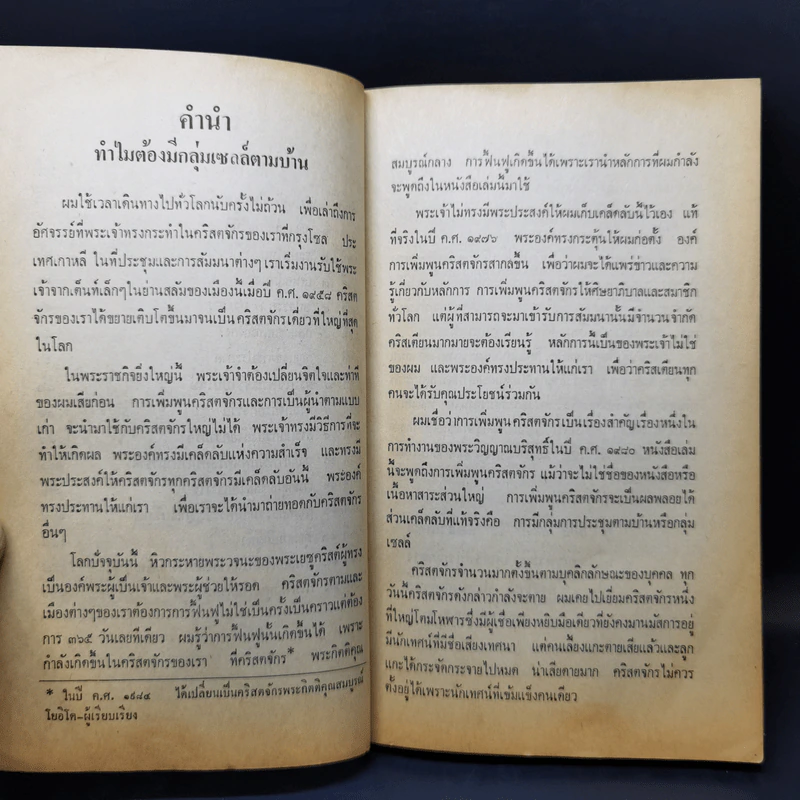 คำนำ
ทำไมต้องมีกลุ่มเซลล์ตามบ้าน
ผมใช้เวลาเดินทางไปทั่วโลกนับครั้งไม่ถ้วน เพื่อเล่าถึงการ
อัศจรรย์ที่พระเจ้าทรงกระทำในคริสตจักรของเราที่กรุงโซล ประ
เทศเกาหลี ในที่ประชุมและการสัมมนาต่างๆ เราเริ่มงานรับใช้พระ
เจ้าจากเต็นท์เล็กๆ ในย่านสลัมของเมืองนี้เมื่อปี ค.ศ. ๑๙๕๘ คริสต
จักรของเราได้ขยายเติบโตขึ้นมาจนเป็นคริสตจักรเดี่ยวที่ใหญ่ที่สุด
ในโลก
ในพระราชกิจยิ่งใหญ่นี้ พระเจ้าจำต้องเปลี่ยนจิตใจและท่าที
ของผมเสียก่อน การเพิ่มพูนคริสตจักรและการเป็นผู้นำตามแบบ
เก่า จะนำมาใช้กับคริสตจักรใหญ่ไม่ได้ พระเจ้าทรงมีวิธีการที่จะ
ทำให้เกิดผล พระองค์ทรงมีเคล็ดลับแห่งความสำเร็จ และทรงมี
พระประสงค์ให้คริสตจักรทุกคริสตจักรมีเคล็ดลับอันนี้ พระองค์
ทรงประทานให้แก่เรา เพื่อเราจะได้นำมาถ่ายทอดกับคริสตจักร
อื่นๆ
โลกปัจจุบันนี้ หิวกระหายพระวจนะของพระเยซูคริสต์ผู้ทรง
เป็นองค์พระผู้เป็นเจ้าและพระผู้ช่วยให้รอด คริสตจักรตามและ
เมืองต่างๆ ของเราต้องการการฟื้นฟูไม่ใช่เป็นครั้งเป็นคราวแต่ต้อง
การ ๓๖๕ วันเลยทีเดียว ผมรู้ว่าการฟื้นฟูนั้นเกิดขึ้นได้ เพราะ
กำลังเกิดขึ้นในคริสตจักรของเรา ที่คริสตจักร* พระกิตติคุณ
* ในปี ค.ศ. ๑๙๘๔ ได้เปลี่ยนเป็นคริสตจักรพระกิตติคุณสมบูรณ์
โยอิโด-ผู้เรียบเรียง
สมบูรณ์กลาง การฟื้นฟูเกิดขึ้นได้เพราะเรานำหลักการที่ผมกำลัง
จะพูดถึงในหนังสือเล่มนี้มาใช้
พระเจ้าไม่ทรงมีพระประสงค์ให้ผมเก็บเคล็ดลับนี้ไว้เอง แท้
ที่จริงในปี ค.ศ. ๑๙๗๖ พระองค์ทรงกระตุ้นให้ผมก่อตั้ง องค์
การเพิ่มพูนคริสตจักรสากลขึ้น เพื่อว่าผมจะได้แพร่ข่าวและความ
รู้เกี่ยวกับหลักการ การเพิ่มพูนคริสตจักรให้ศิษยาภิบาลและสมาชิก
ทั่วโลก แต่ผู้ที่สามารถจะมาเข้ารับการสัมมนานั้นมีจำนวนจำกัด
คริสเตียนมากมายจะต้องเรียนรู้ หลักการนี้เป็นของพระเจ้าไม่ใช่
ของผม และพระองค์ทรงประทานให้แก่เรา เพื่อว่าคริสเตียนทุก
คนจะได้รับคุณประโยชน์ร่วมกัน
ผมเชื่อว่าการเพิ่มพูนคริสตจักรเป็นเรื่องสำคัญเรื่องหนึ่งใน
การทำงานของพระวิญญาณบริสุทธิ์ในปี ค.ศ. ๑๙๘๐ หนังสือเล่ม
นี้จะพูดถึงการเพิ่มพูนคริสตจักร แม้ว่าจะไม่ใช่ชื่อของหนังสือหรือ
เนื้อหาสาระส่วนใหญ่ การเพิ่มพูนคริสตจักรจะเป็นผลพลอยได้
ส่วนเคล็ดลับที่แท้จริงคือ การมีกลุ่มการประชุมตามบ้านหรือกลุ่ม
เซลล์
คริสตจักรจำนวนมากตั้งขึ้นตามบุคลิกลักษณะของบุคคล ทุก
วันนี้คริสตจักรดังกล่าวกำลังจะตาย ผมเคยไปเยี่ยมคริสตจักรหนึ่ง
ที่ใหญ่โตมโหฬารซึ่งมีผู้เชื่อเพียงหยิบมือเดียวที่ยังคงมานมัสการอยู่
มีนักเทศน์ที่มีชื่อเสียงเทศนา แต่คนเลี้ยงแกะตายเสียแล้วและลูก
แกะได้กระจัดกระจายไปหมด น่าเสียดายมาก คริสตจักรไม่ควร
ตั้งอยู่ได้เพราะนักเทศน์ที่เข้มแข็งคนเดียว